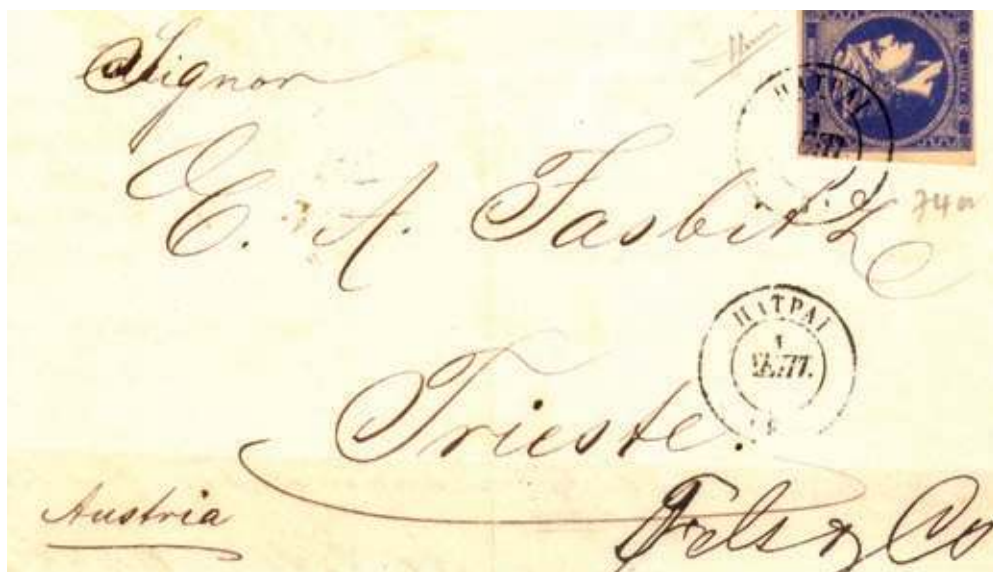 Signor
E. A. Tasbitz
ΠΑΤΡΑΙ
74a
ΠΑΤΡΑΙ
1
ΣΕΠΤ.
Trieste.
Austria
Fels & Co